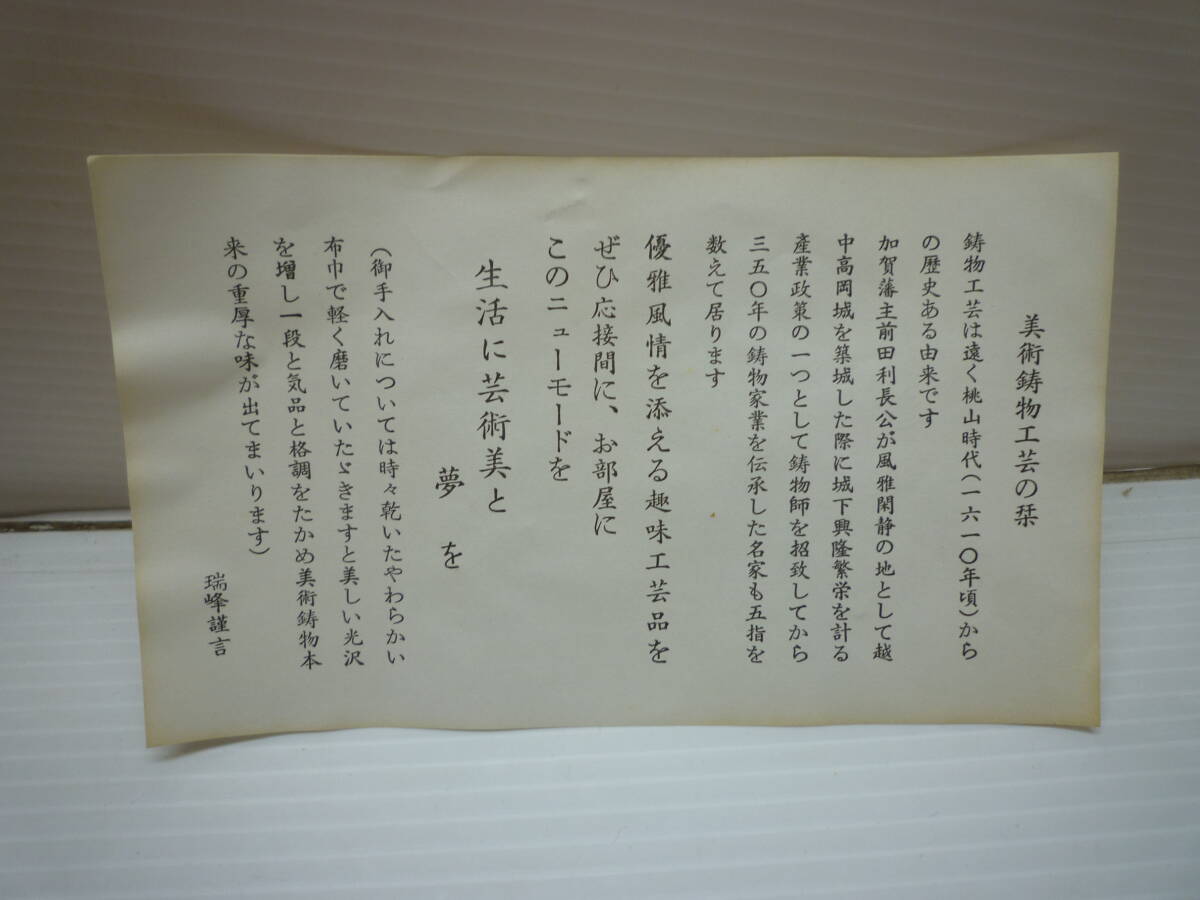 美術鋳物工芸の栞
鋳物工芸は遠く桃山時代(一六一〇年頃)から
の歴史ある由来です
加賀藩主前田利長公が風雅閑静の地として越
中高岡城を築城した際に城下興隆繁栄を計る
産業政策の一つとして鋳物師を招致してから
三五〇年の鋳物家業を伝承した名家も五指を
数えて居ります
優雅風情を添える趣味工芸品を
ぜひ応接間に、お部屋に
このニューモードを
生活に芸術美と
夢を
(御手入れについては時々乾いたやわらかい
布巾で軽く磨いていたゞきますと美しい光沢
を増し一段と気品と格調をたかめ美術鋳物本
来の重厚な味が出てまいります)
瑞峰謹言